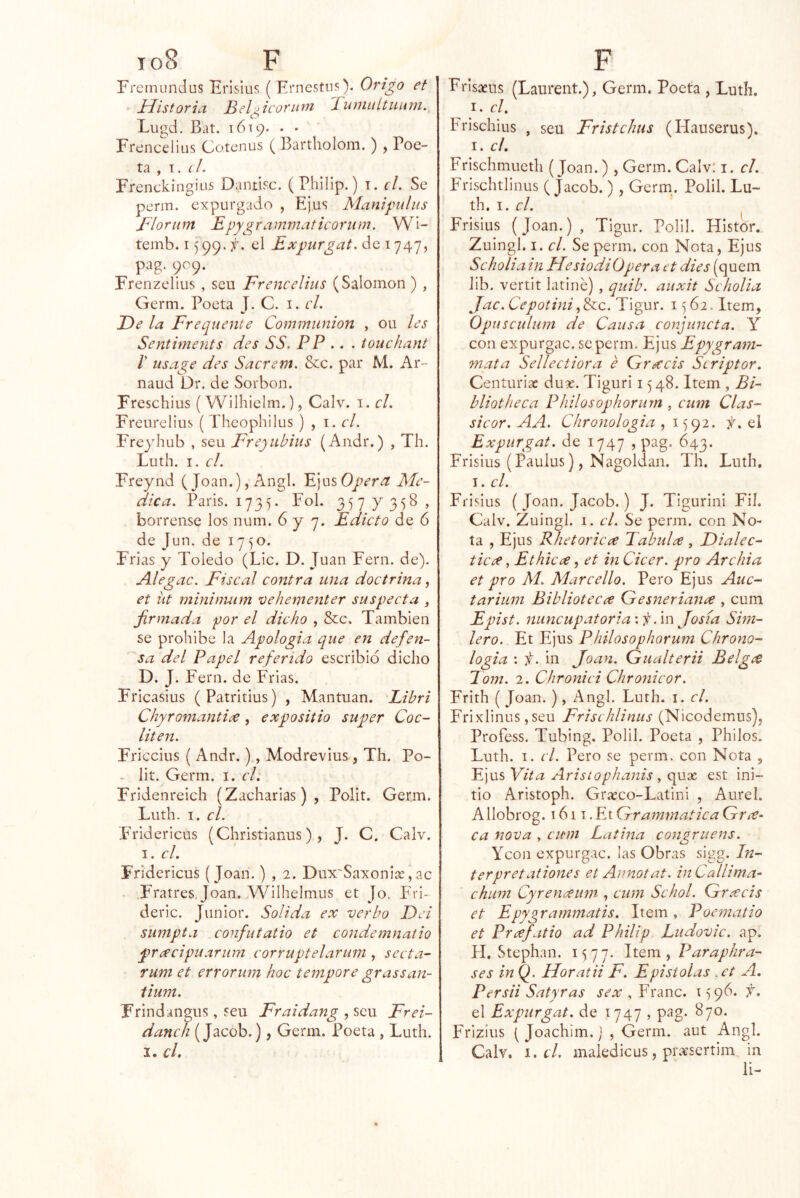 108 F
Fremundus Erisius ( Ernestus ). Origo et
Historia Belgicorum Tumultuum.
Lugd. Bat. 1619. . .
Frencelius Cotenus ( Bartholom. ) , Poe-
ta , 1. cl.
Frenckingius Dantisc. ( Philip. ) 1. cl. Se
perm. expurgado , Ejus Manipulus
Florum Epygrammaticorum. Wi-
temb. 1599. ℣. el Expurgat. de 1747,
pag. 909.
Frenzelius , seu Frencelius (Salomon ) ,
Germ. Poeta J. C. 1. cl.
De la Frequente Communion , ou les
Sentiments des SS. PP . . . touchant
l' usage des Sacrem. &c. par M. Ar-
naud Dr. de Sorbon.
Freschius ( Wilhielm. ), Calv. 1. cl.
Freurelius ( Theophilus ) , 1. cl.
Freyhub , seu Freyubius (Andr.) , Th.
Luth. 1. cl.
Freynd ( Joan.), Angl. Ejus Opera Me-
dica. Paris. 1735. Fol. 357 y 358 ,
borrense los num. 6 y 7. Edicto de 6
de Jun. de 1750.
Frias y Toledo (Lic. D. Juan Fern. de).
Alegac. Fiscal contra una doctrina ,
et ut minimum vehementer suspecta ,
firmada por el dicho , &c. Tambien
se prohibe la Apologia que en defen-
sa del Papel referido escribió dicho
D. J. Fern. de Frias.
Fricasius ( Patritius) , Mantuan. Libri
Chyromantiæ , expositio super Coc-
liten.
Friccius ( Andr. ) , Modrevius , Th. Po-
lit. Germ. 1. cl.
Fridenreich (Zacharias ) , Polit. Germ.
Luth. 1. cl.
Fridericus (Christianus ) , J. C. Calv.
1. cl.
Fridericus ( Joan. ) , 2. Dux Saxoniæ , ac
Fratres Joan. Wilhelmus et Jo. Fri-
deric. Junior. Solida ex verbo Dei
sumpta confutatio et condemnatio
præcipuarum corruptelarum , secta-
rum et errorum hoc tempore grassan-
tium.
Frindangus , seu Fraidang , seu Frei-
danch ( Jacob. ) , Germ. Poeta , Luth.
1. cl.
F
Frisæus (Laurent.), Germ. Poeta , Luth.
1. cl.
Frischius , seu Fristchus (Hauserus).
1. cl.
Frischmueth ( Joan. ) , Germ. Calv. 1. cl.
Frischtlinus ( Jacob. ) , Germ. Polil. Lu-
th. 1. cl.
Frisius ( Joan.) , Tigur. Polil. Histor.
Zuingl. 1. cl. Se perm. con Nota, Ejus
Scholia in Hesiodi Opera et dies (quem
lib. vertit latinè) , quib. auxit Scholia
Jac. Cepotini , &c. Tigur. 1562. Item,
Opusculum de Causa conjuncta. Y
con expurgac. se perm. Ejus Epygram-
mata Sellectiora è Græcis Scriptor.
Centuriæ duæ. Tiguri 1548. Item , Bi-
bliotheca Philosophorum , cum Clas-
sicor. AA. Chronologia , 1592. ℣. el
Expurgat. de 1747 , pag. 643.
Frisius ( Paulus ) , Nagoldan. Th. Luth.
1. cl.
Frisius ( Joan. Jacob. ) J. Tigurini Fil.
Calv. Zuingl. 1. cl. Se perm. con No-
ta , Ejus Rhetoricæ Tabulæ , Dialec-
ticæ , Ethicæ , et in Cicer. pro Archia
et pro M. Marcello. Pero Ejus Auc-
tarium Bibliotecæ Gesnerianæ , cum
Epist. nuncupatoria : ℣. in Josía Sim-
lero. Et Ejus Philosophorum Chrono-
logia : ℣. in Joan. Gualterii Belgæ
Tom. 2. Chronici Chronicor.
Frith ( Joan. ) , Angl. Luth. 1. cl.
Frixlinus , seu Frischlinus (Nicodemus),
Profess. Tubing. Polil. Poeta , Philos.
Luth. 1. cl. Pero se perm. con Nota ,
Ejus Vita Aristophanis , quæ est ini-
tio Aristoph. Græco-Latini , Aurel.
Allobrog. 1611. Et Grammatica Græ-
ca nova , cum Latina congruens.
Ycon expurgac. las Obras sigg. In-
terpretationes et Annotat. in Callima-
chum Cyrenæum , cum Schol. Græcis
et Epygrammatis. Item , Poematio
et Præfatio ad Philip. Ludovic. ap.
H. Stephan. 1577. Item , Paraphra-
ses in Q. Horatii F. Epistolas , et A.
Persii Satyras sex , Franc. 1596. ℣.
el Expurgat. de 1747 , pag. 870.
Frizius ( Joachim. ) , Germ. aut Angl.
Calv. 1. cl. maledicus , præsertim in
li-